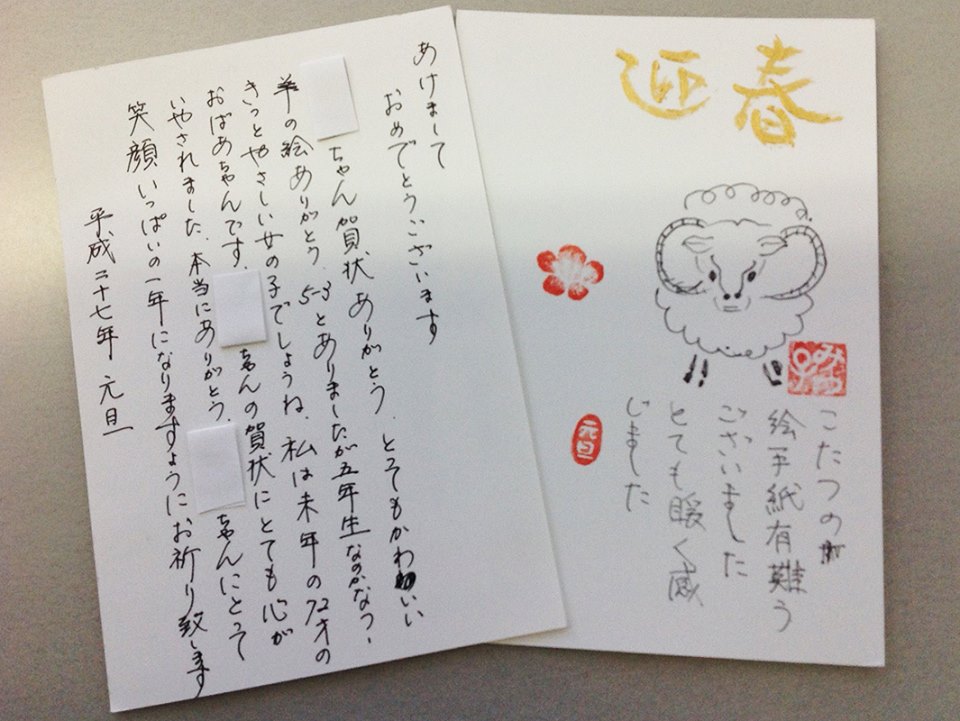 迎春
こたつの
絵手紙有難う
ございました
とても暖く感
じました
元旦
あけまして
おめでとうございます
ちゃん賀状ありがとう、とてもかわいい
羊の絵ありがとう、5-3とありましたが五年生なのかな?
きっとやさしい女の子でしょうね、私は未年の72才の
おばあちゃんです、ちゃんの賀状にとても心が
いやされました、本当にありがとう、ちゃんにとって
笑顔いっぱいの一年になりますようにお祈り致します
平成二十七年 元旦